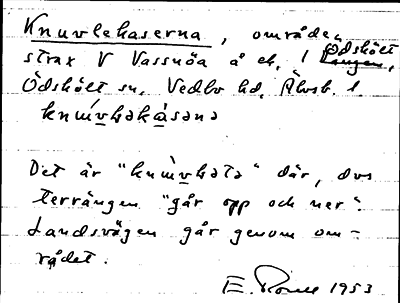 Knuvlekaserna, områden
strax V Vassnöa å ek. l Ödskölt
Ödskölt sn, Vedbo hd, Älvsb. l.
knu̇vləkȧsənə
Det är "knu̇vləta" där, dvs
terrängen "går opp och ner".
Landsvägen går genom om-
rådet.
E. 1953